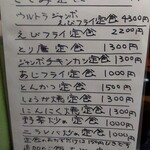 ウルトラジャンボ
えびフライ定食 4300円
えびフライ定食 2200円
とり唐定食 1300円
ジャンボチキンカツ定食 1300円
あじフライ定食 1000円
とんかつ定食 1500円
しょうが焼定食 1300円
にんにく焼定食 1300円
野菜いため定食 1000円
定食 1000円